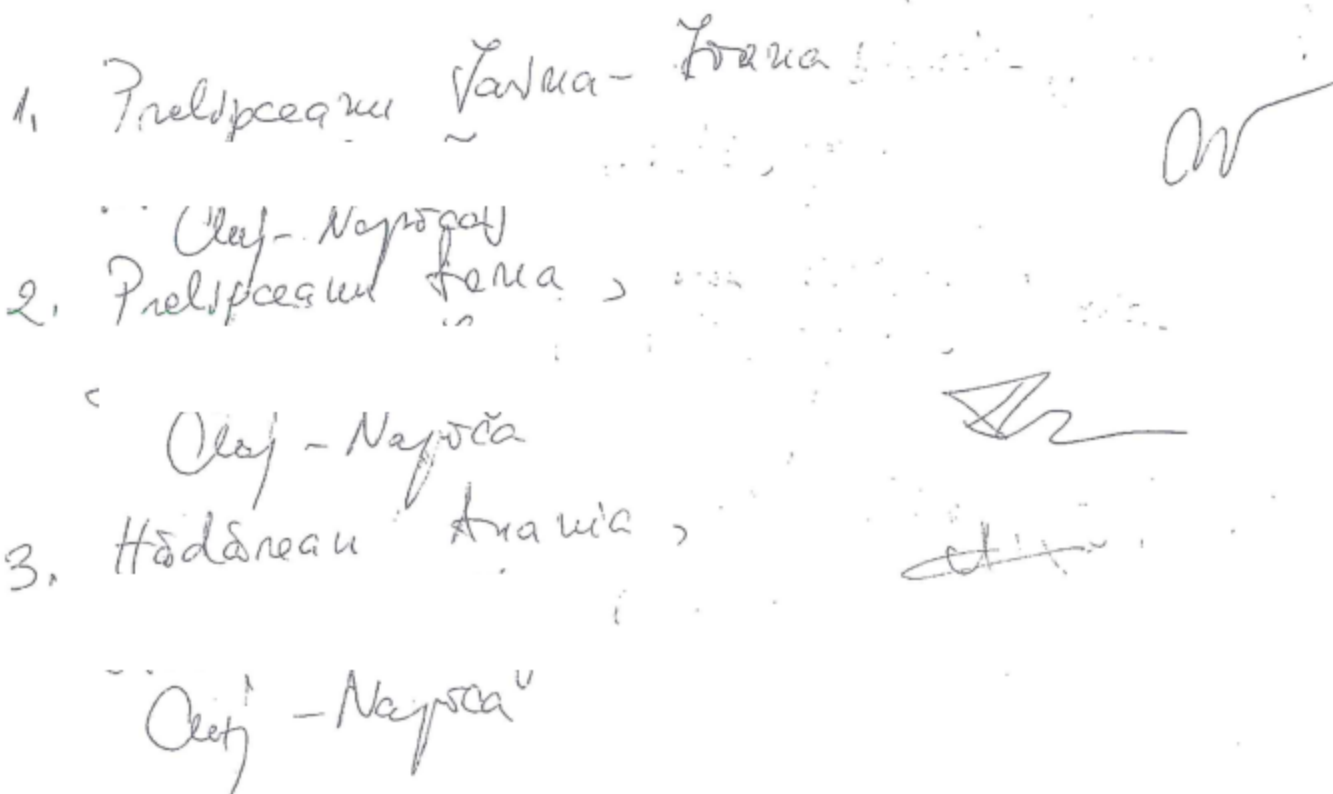 1. Prelipceanu Iavina-Ioana
Cluj-Napoca
2. Prelipceanu Ioana,
Cluj-Napoca
3. Hădărean Anania,
Cluj-Napoca